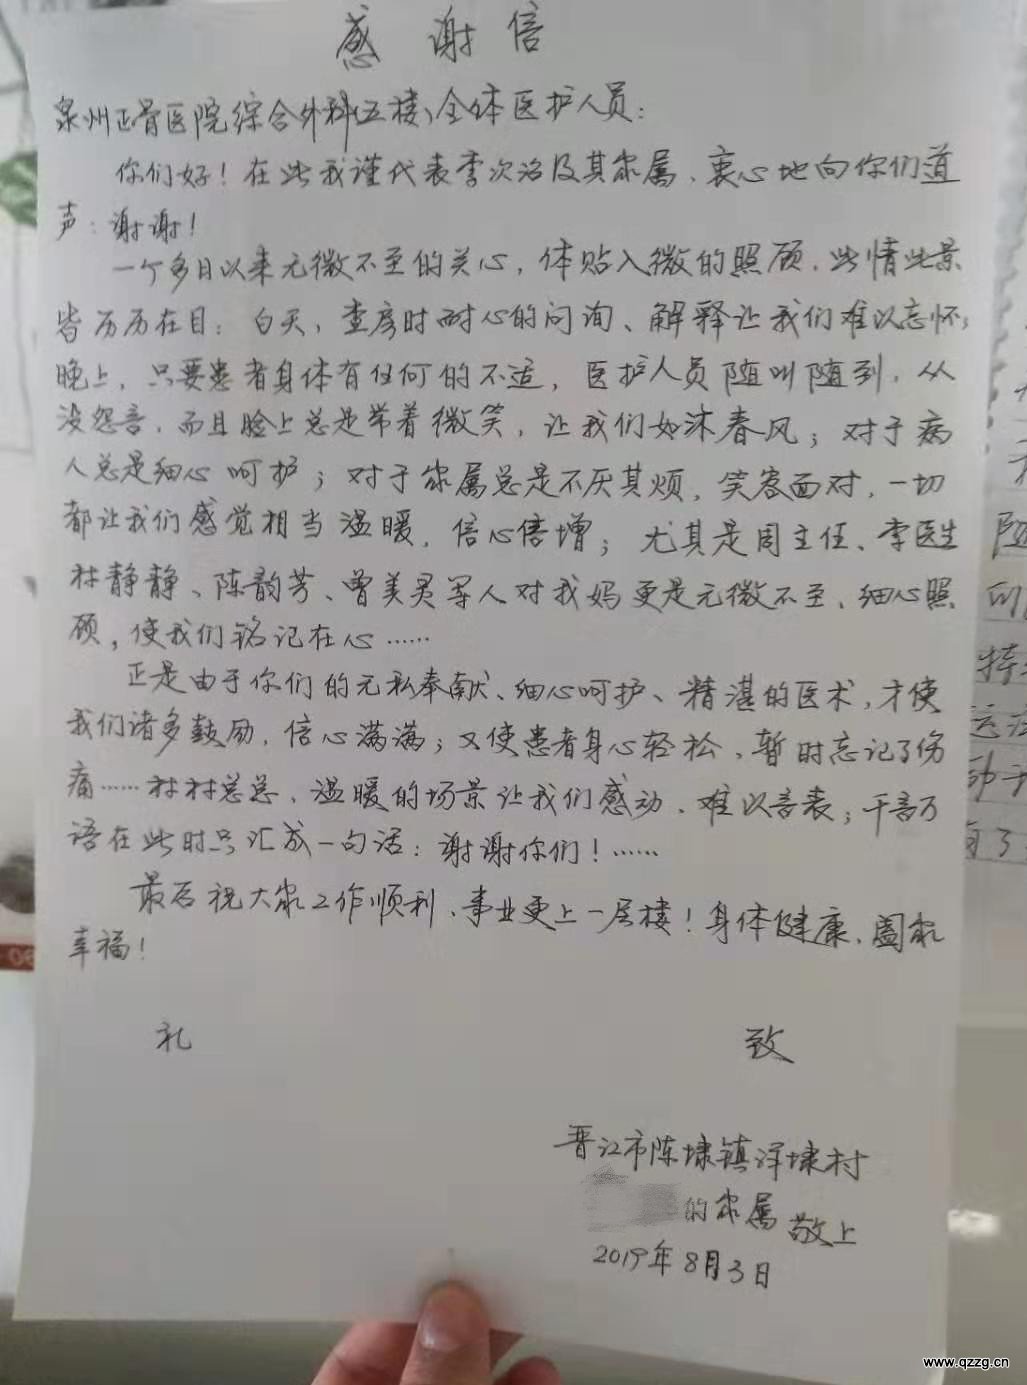 感谢信
泉州正骨医院综合外科(五楼)全体医护人员:
你们好!在此我谨代表李次治及其家属、衷心地向你们道
声:谢谢!
一个多月以来无微不至的关心,体贴入微的照顾,此情此景
皆历历在目:白天,查房时耐心的问询、解释让我们难以忘怀;
晚上,只要患者身体有任何的不适,医护人员随叫随到,从
没怨言,而且脸上总是带着微笑,让我们如沐春风;对于病
人总是细心呵护;对于家属总是不厌其烦,笑容面对,一切
都让我们感觉相当温暖,信心倍增;尤其是周主任、李医生
林静静、陈韵芳、曾美灵等人对我妈更是无微不至、细心照
顾,使我们铭记在心……
正是由于你们的无私奉献、细心呵护、精湛的医术,才使
我们诸多鼓励,信心满满;又使患者身心轻松,暂时忘记了伤
痛……林林总总,温暖的场景让我们感动,难以言表;千言万
语在此时只汇成一句话:谢谢你们!……
最后祝大家工作顺利、事业更上一层楼!身体健康、阖家
幸福!
礼 致
晋江市陈埭镇洋埭村
的家属敬上
2019年8月3日
随
的
特
www.qzzg.cn